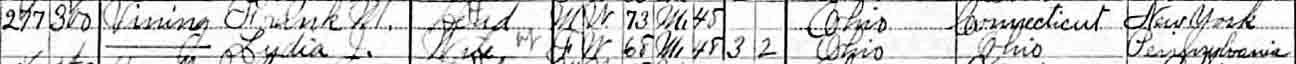 277 300 Vining Frank M. Head M W 73 M1 48 Ohio Connecticut New York
Lydia J. Wife F W 68 M1 48 3 2 Ohio Ohio Pennsylvania